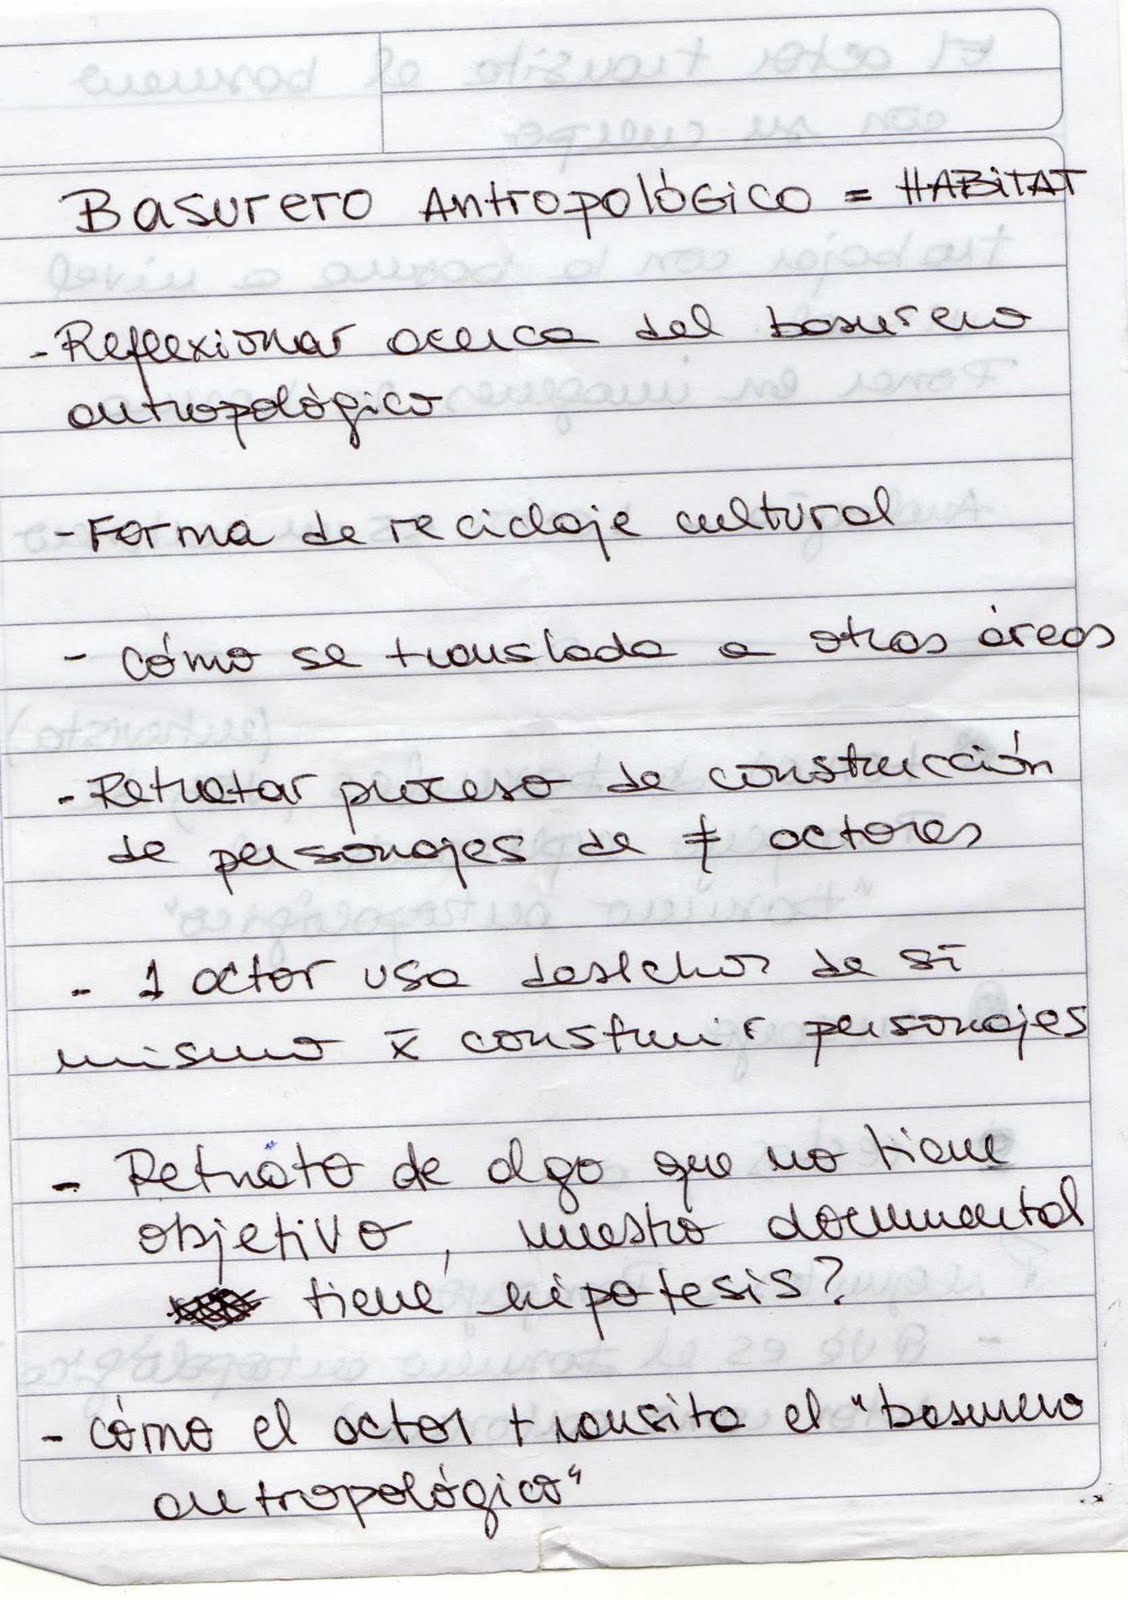 Basurero Antropológico = HABiTAT
- Reflexionar acerca del basurero
antropológico
- Forma de reciclaje cultural
- Cómo se translada a otras áreas
- Retratar proceso de construcción
de personajes de ≠ actores
- 1 actor usa desechos de sí
mismo x construir personajes
- Retrato de algo que no tiene
objetivo, nuestro documental
tiene hipotesis?
- Cómo el actor transita el "basurero
antropológico"